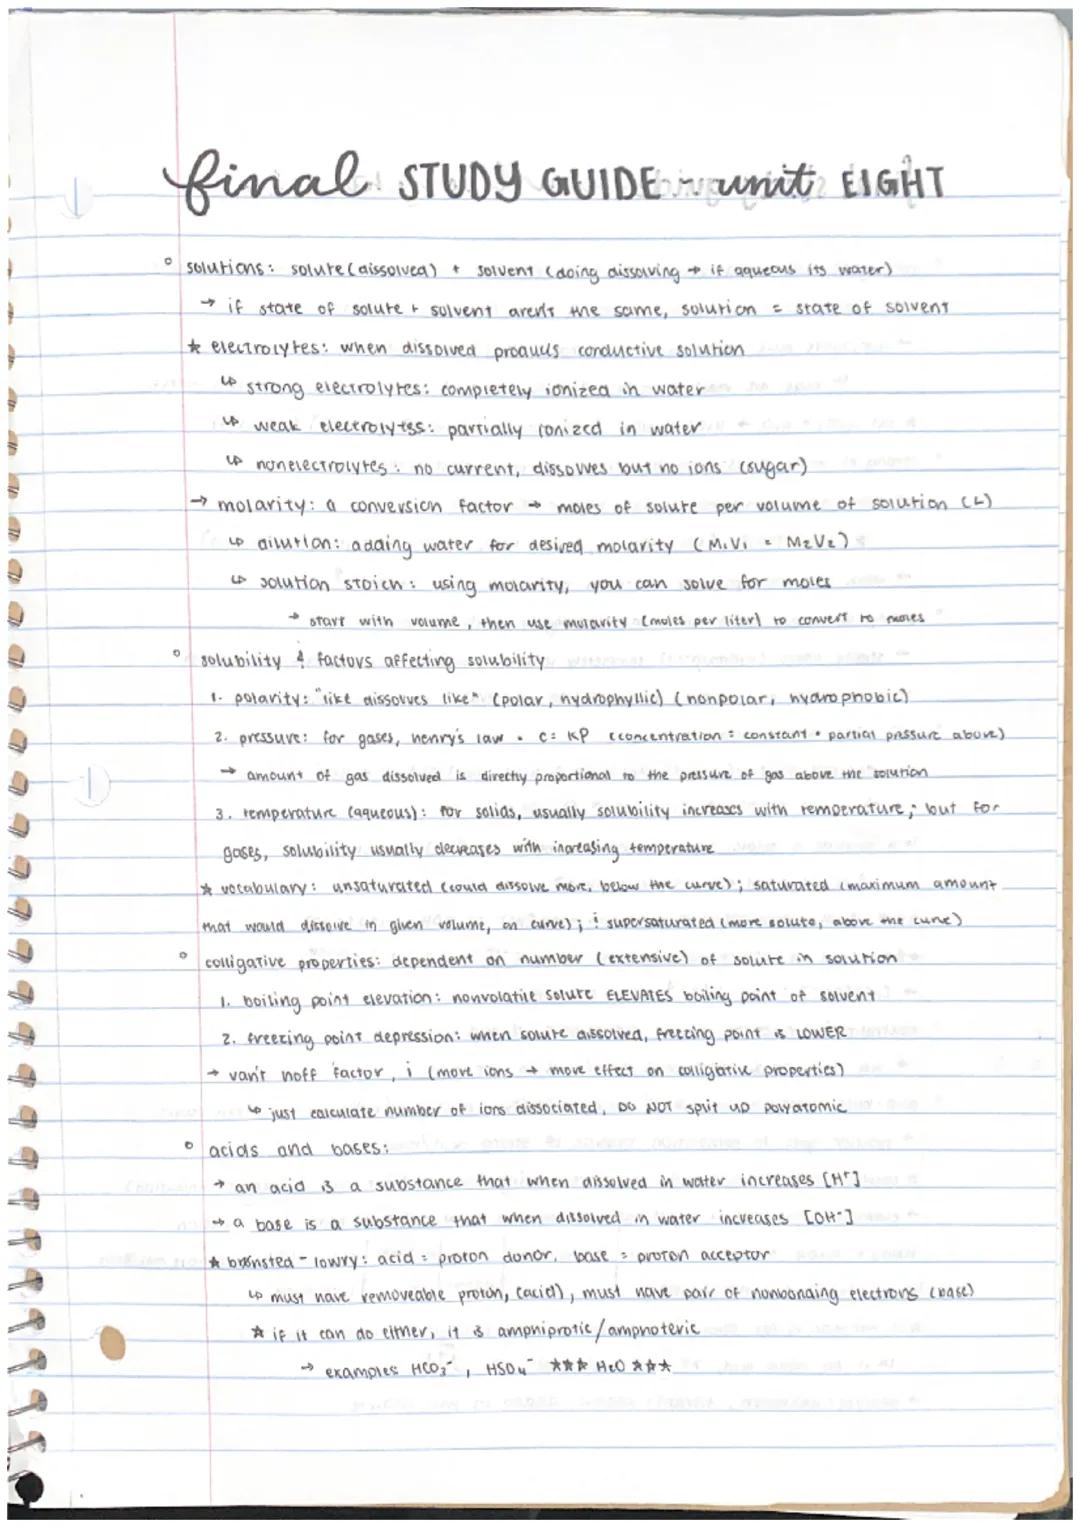 final STUDY GUIDE - unit EIGHT
° solutions: solute (dissolved) + solvent (doing dissolving → if aqueous its water)
→ if state of solute + solvent aren't the same, solution = state of solvent
★ electrolytes: when dissolved produces conductive solution
↳ strong electrolytes: completely ionized in water
↳ weak electrolytes: partially ionized in water
↳ nonelectrolytes: no current, dissolves but no ions (sugar)
→ molarity: a conversion factor → moles of solute per volume of solution (L)
↳ dilution: adding water for desired molarity (M₁V₁ = M₂V₂)
↳ solution stoich: using molarity, you can solve for moles
→ start with volume, then use molarity (moles per liter) to convert to moles
° solubility & factors affecting solubility
1. polarity: "like dissolves like" (polar, hydrophyllic) (nonpolar, hydrophobic)
2. pressure: for gases, henry's law • C = KP (concentration = constant • partial pressure above)
→ amount of gas dissolved is directly proportional to the pressure of gas above the solution
3. temperature (aqueous): for solids, usually solubility increases with temperature; but for
gases, solubility usually decreases with increasing temperature
★ vocabulary: unsaturated (could dissolve more, below the curve); saturated (maximum amount
that would dissolve in given volume, on curve); & supersaturated (more solute, above the curve)
° colligative properties: dependent on number (extensive) of solute in solution
1. boiling point elevation: nonvolatile solute ELEVATES boiling point of solvent
2. freezing point depression: when solute dissolved, freezing point is LOWER
→ van't hoff factor, i (more ions → more effect on colligative properties)
↳ just calculate number of ions dissociated, DO NOT split up polyatomic
° acids and bases:
→ an acid is a substance that when dissolved in water increases [H⁺]
→ a base is a substance that when dissolved in water increases [OH⁻]
★ brønsted - lowry: acid = proton donor, base = proton acceptor
↳ must have removeable proton, (acid), must have pair of nonbonding electrons (base)
★ if it can do either, it is amphiprotic/amphoteric
→ examples HCO₃⁻, HSO₄⁻ ★★★ H₂O ★★★